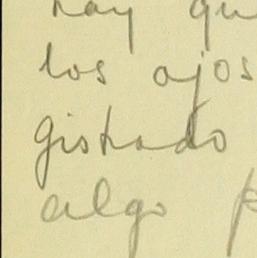 hay qu
los ojos
gistrado
algo p